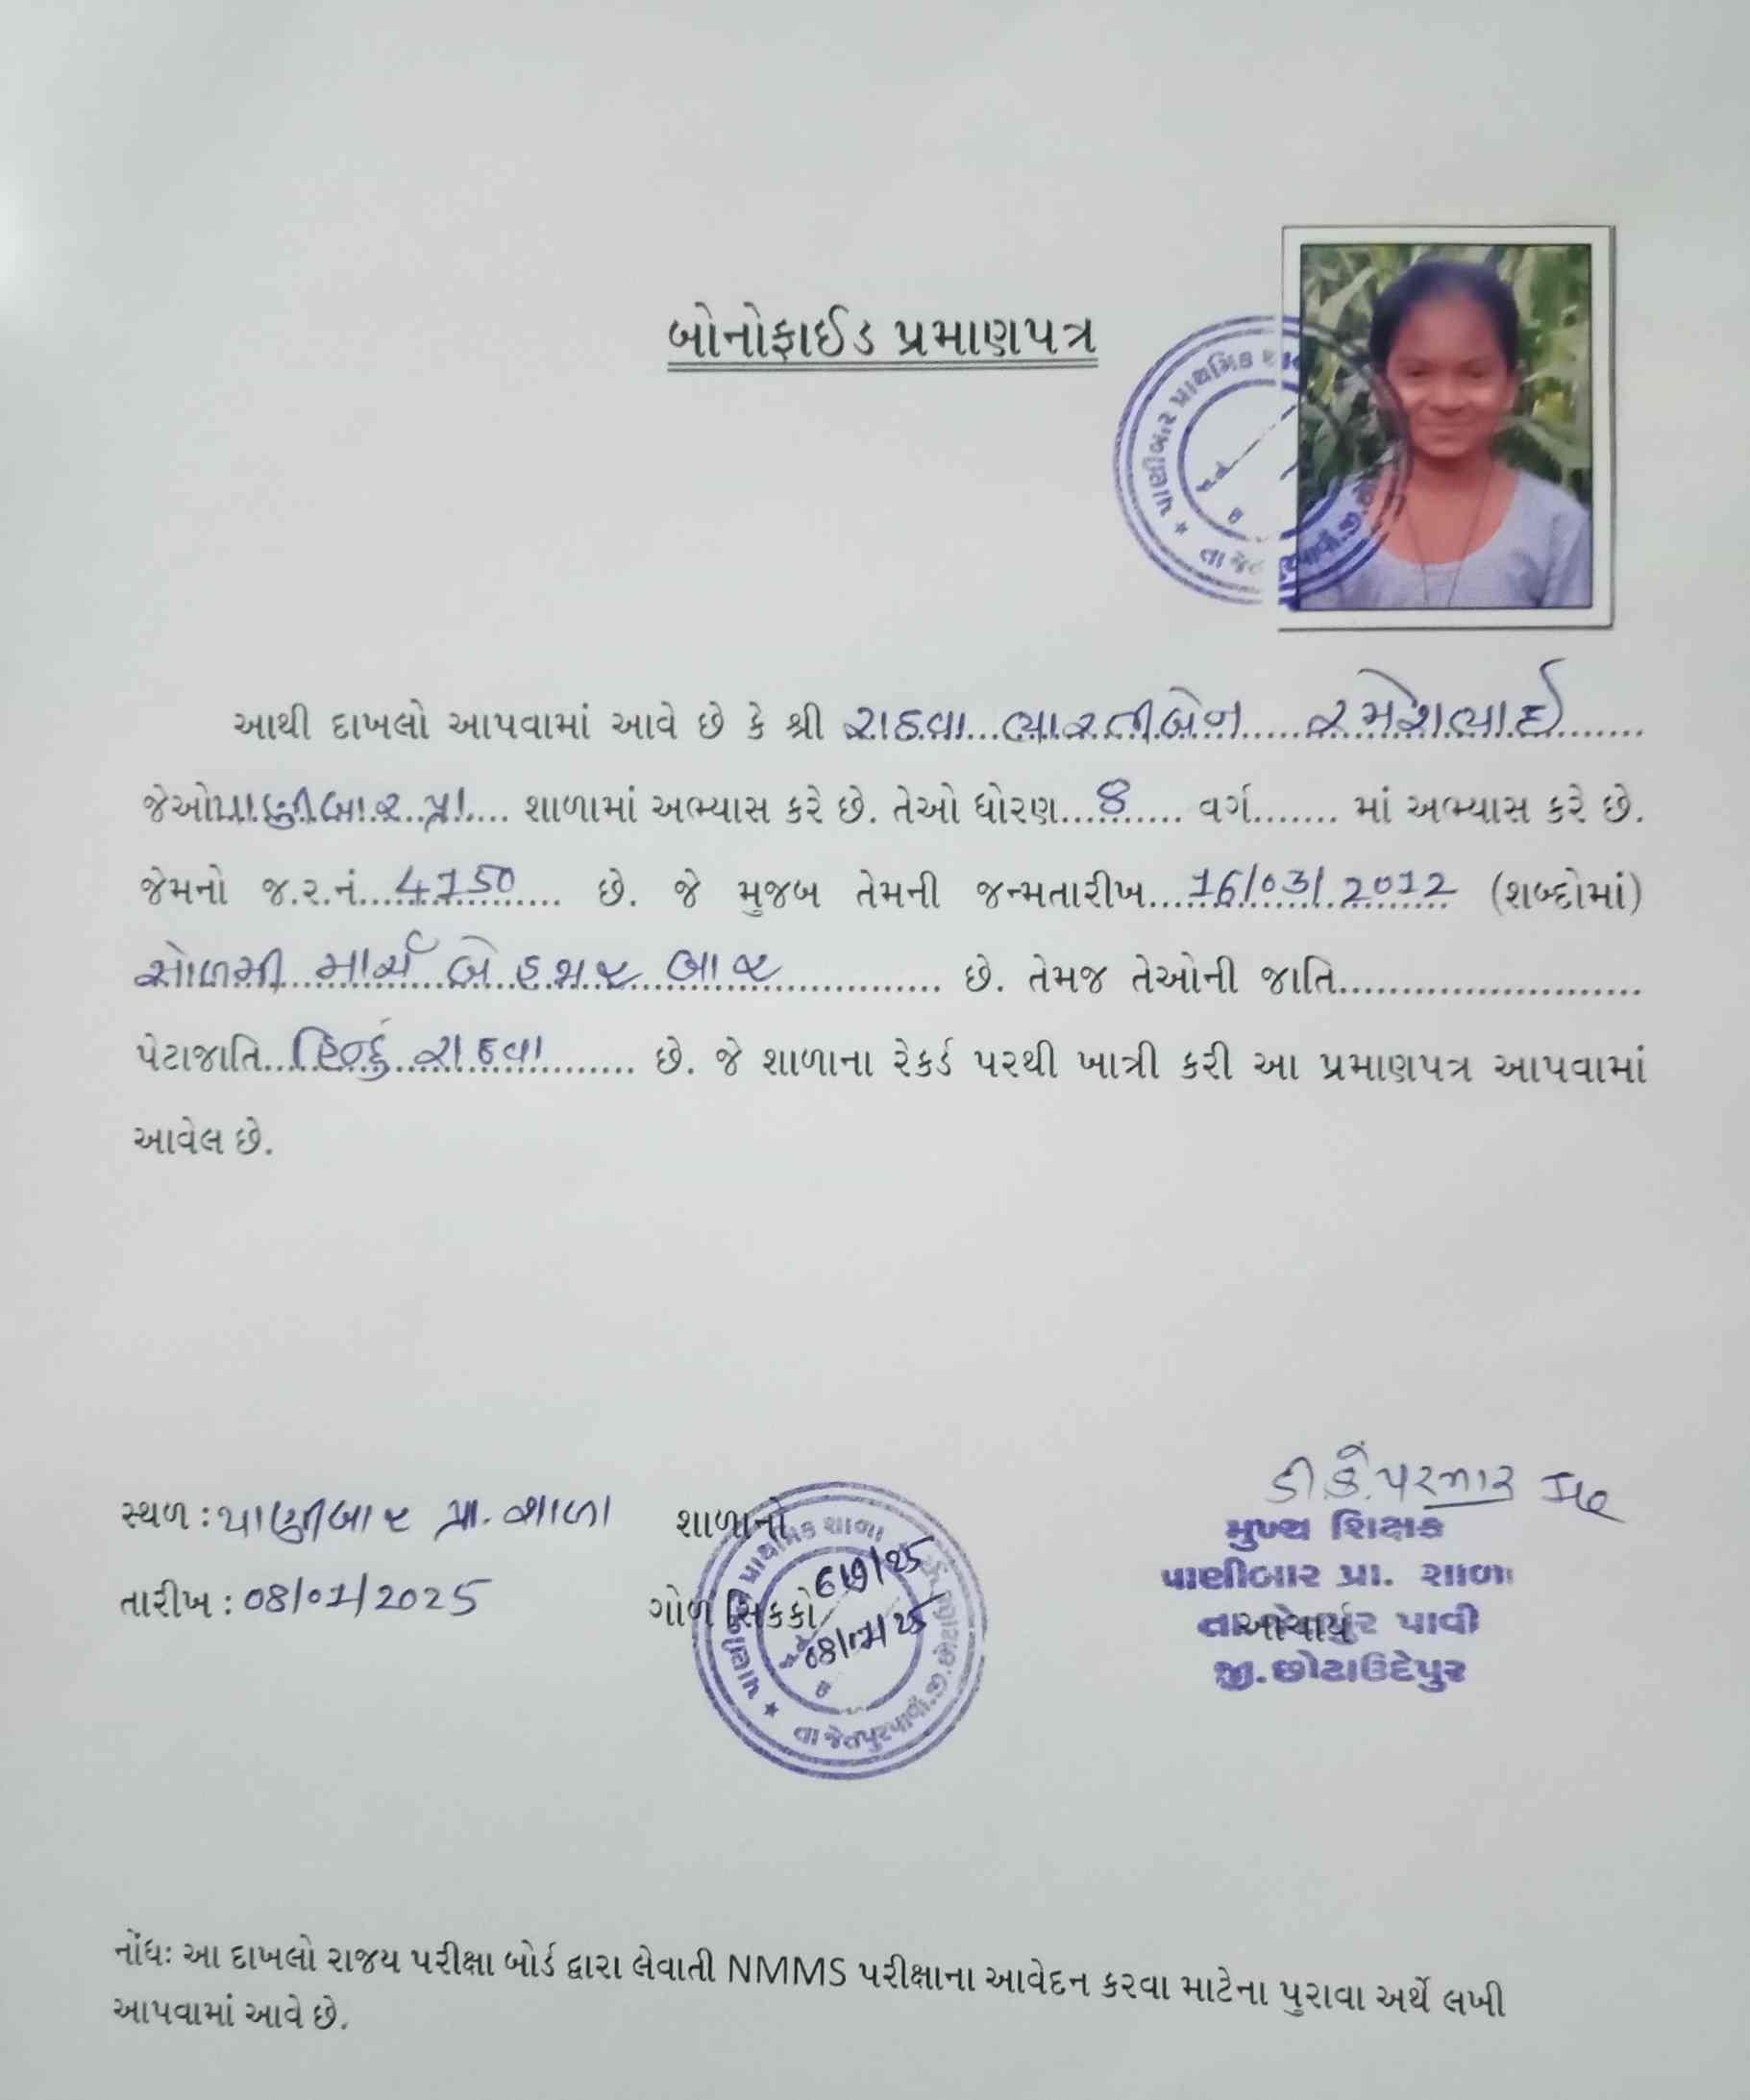 બોનોફાઈડ પ્રમાણપત્ર
આથી દાખલો આપવામાં આવે છે કે શ્રી રાઠવા...ભારતીબેન.....રમેશભાઈ.......
જેઓ પાણીબાર પ્રા.... શાળામાં અભ્યાસ કરે છે. તેઓ ધોરણ...8...... વર્ગ....... માં અભ્યાસ કરે છે.
જેમનો જ.ર.નં...4150.... છે. જે મુજબ તેમની જન્મતારીખ...16/03/2012 (શબ્દોમાં)
સોળમી માર્ચ બે હજાર બાર............. છે. તેમજ તેઓની જાતિ........................
પેટાજાતિ...હિન્દુ રાઠવા....... છે. જે શાળાના રેકર્ડ પરથી ખાત્રી કરી આ પ્રમાણપત્ર આપવામાં
આવેલ છે.
ડી.કે.પરમાર
સ્થળ : પાણીબાર પ્રા. શાળા
શાળાનો
મુખ્ય શિક્ષક
પાણીબાર પ્રા. શાળા
તારીખ : 08/01/2025
ગોળ સિકકો
08/01/25
પાણીબાર પ્રાથમિક શાળા
તા જેતપુરપાવી.જી.છોટાઉદેપુર
આચાર્ય
પાવી
જી.છોટાઉદેપુર
નોંધઃ આ દાખલો રાજય પરીક્ષા બોર્ડ દ્વારા લેવાતી NMMS પરીક્ષાના આવેદન કરવા માટેના પુરાવા અર્થે લખી
આપવામાં આવે છે.